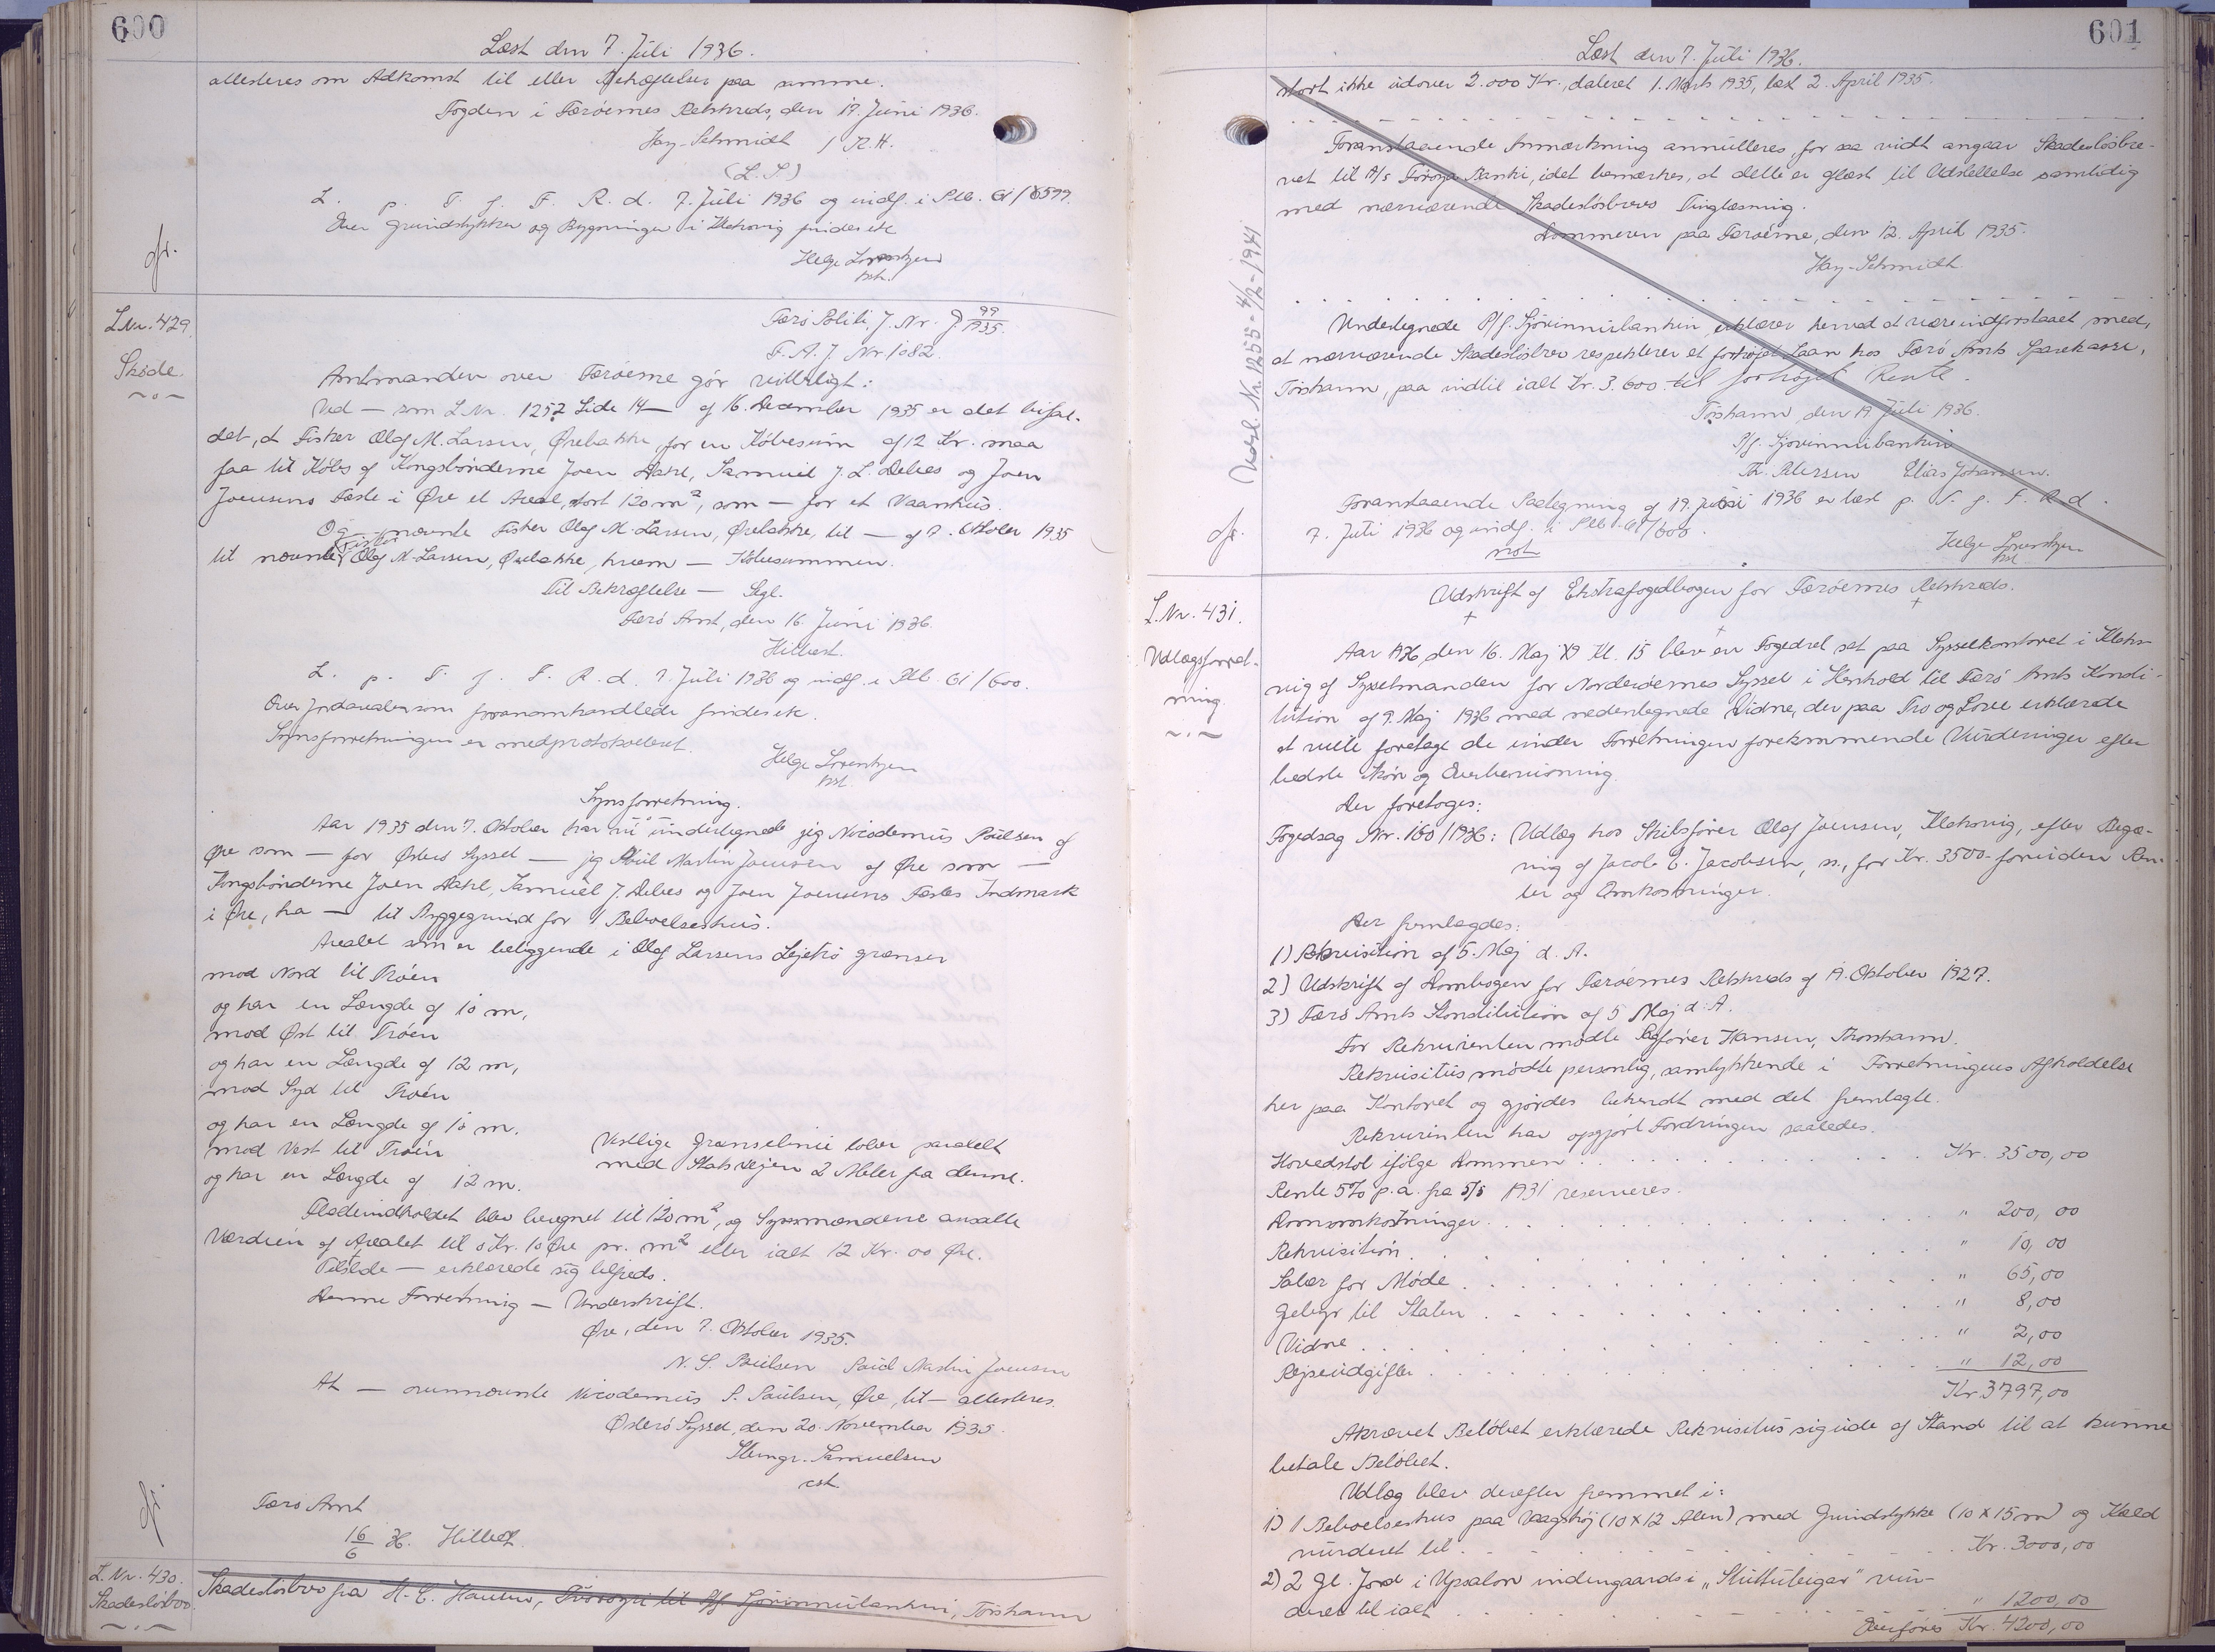 600
Læst den 7. Juli 1936.
attesteres om Adkomst til eller Behæftelser paa samme.
Fogden i Færøernes Retskreds, den 17. Juni 1936.
Hay-Schmidt / R.H.
(L.S.)
L. p. T. f. F. R. d. 7. Juli 1936 og indf. i Plb. 61/599.
Over Grundstykker og Bygninger i Klaksvig findes etc
Helge Lorentzen
kst.
L.Nr. 429.
Skøde.
Færø Politi J. Nr. J. 99/1935.
F. A. J. Nr. 1082.
Amtmanden over Færøerne gør vitterligt:
Ved — som L.Nr. 1252 Side 14 — af 16. December 1935 er det bifal-
det, at Fisker Olaf M. Larsen, Ørebakke, for en Købesum af 12 Kr. maa
faa til Købs af Kongsbønderne Joen Dahl, Samuel J. L. Debes og Joen
Joensens Fæste i Øre et Areal, stort 120 m², som — for et Vaanhus.
Og — nævnte Fisker Olaf M. Larsen, Ørebakke, til — af 7. Oktober 1935
til nævnte Fisker Olaf M. Larsen, Ørebakke, hvem — Købesummen.
Til Bekræftelse — Segl.
Færø Amt, den 16. Juni 1936.
Hilbert.
L. p. T. f. F. R. d. 7. Juli 1936 og indf. i Plb. 61/600.
Over Jordarealer som foranomhandlede findes etc.
Synsforretningen er medprotokolleret.
Helge Lorentzen
kst.
Synsforretning.
Aar 1935 den 7. Oktober har vi undertegnede jeg Nicodemus Poulsen af
Øre som — for Østerø Syssel — jeg Poul Martin Joensen af Øre som —
Kongsbønderne Joen Dahl, Samuel J. Debes og Joen Joensens Fæstes Indmark
i Øre, fra — til Byggegrund for 1 Beboelseshus.
Arealet som er beliggende i Olaf Larsens Lejetrø grænser
mod Nord til Trøen
og har en Længde af 10 m,
mod Øst til Trøen
og har en Længde af 12 m,
mod Syd til Trøen
og har en Længde af 10 m.
mod Vest til Trøen
og har en Længde af 12 m.
Vestlige Grænselinie løber paralelt
med Statsvejen 2 Meter fra denne.
Fladeindholdet blev beregnet til 120 m², og Synsmændene ansatte
Værdien af Arealet til 0 Kr. 10 Øre pr. m² eller ialt 12 Kr. 00 Øre.
Tilstede — erklærede sig tilfreds.
Denne Forretning — Underskrift.
Øre, den 7. Oktober 1935.
N. S. Poulsen Poul Martin Joensen
At — ovennævnte Nicodemus S. Poulsen, Øre, til — attesteres.
Østerø Syssel, den 20. November 1935.
Steingr. Samuelsen
cst.
Færø Amt
16/6 36. Hilbert
L.Nr. 430.
Skadesløsbrev.
Skadesløsbrev fra H. C. Hansen, Tvøroyri til P/f. Sjóvinnubankin, Tórshavn
601
Læst den 7. Juli 1936.
stort ikke udover 2.000 Kr., dateret 1. Marts 1935, læst 2. April 1935.
Foranstaaende Anmærkning annulleres, for saa vidt angaar Skadesløsbre-
vet til A/s Føroya Banki, idet bemærkes, at dette er aflæst til Udslettelse samtidig
med nærværende Skadesløsbrevs Tinglæsning.
Dommeren paa Færøerne, den 12. April 1935.
Hay-Schmidt
Undertegnede P/f. Sjóvinnubankin erklærer herved at være indforstaaet med,
at nærværende Skadesløsbrev respekterer et forhøjet Laan hos Færø Amts Sparekasse,
Tórshavn, paa indtil ialt Kr. 3.600 til forhøjet Rente.
Tórshavn, den 19. Juni 1936.
P/f. Sjóvinnubankin
Th. Petersen Elias Johansen.
Foranstaaende Paategning af 19. Juni 1936 er læst p. T. f. F. R. d.
7. Juli 1936 og indf. i Plb. 61/600.
Helge Lorentzen
kst.
L.Nr. 431.
Udlægsforret-
ning.
Udskrift af Ekstrafogedbogen for Færøernes Retskreds.
Aar 1936, den 16. Maj Kl. 15 blev en Fogedret sat paa Sysselkontoret i Klaks-
vig af Sysselmanden for Norderøernes Syssel i Henhold til Færø Amts Konsti-
tution af 9. Maj 1936 med nedentegnede Vidne, der paa Tro og Love erklærede
at ville foretage de under Forretningen forekommende Vurderinger efter
bedste Skøn og Overbevisning.
Der foretoges:
Fogedsag Nr. 160/1936: Udlæg hos Skibsfører Olaf Joensen, Klaksvig, efter Begæ-
ring af Jacob E. Jacobsen, s., for Kr. 3500- foruden Ren-
ter og Omkostninger.
Der fremlagdes:
1) Rekvisition af 5. Maj d. A.
2) Udskrift af Dombogen for Færøernes Retskreds af 19. Oktober 1927.
3) Færø Amts Konstitution af 5 Maj d. A.
For Rekvirenten mødte Sagfører Hansen, Thorshavn.
Rekvisitus mødte personlig, samtykkende i Forretningens Afholdelse
her paa Kontoret og gjordes bekendt med det fremlagte.
Rekvirenten har opgjort Fordringen saaledes.
Hovedstol ifølge Dommen . . . Kr. 3500,00
Rente 5% p.a. fra 5/5 1931 reserveres.
Domsomkostninger . . . " 200,00
Rekvisition . . . " 10,00
Salær for Møde . . . " 65,00
Gebyr til Staten . . . " 8,00
Vidne . . . " 2,00
Rejseudgifter . . . " 12,00
Kr. 3797,00
Afkrævet Beløbet erklærede Rekvisitus sig ude af Stand til at kunne
betale Beløbet.
Udlæg blev derefter fremmet i:
1) 1 Beboelseshus paa Vaagshøj (10 x 12 Alen) med Grundstykke (10 x 15 m) og Kæld
vurderet til . . . Kr. 3000,00
2) 2 Gl. Jord i Upsalon indengaards i „Stuttuteigar" vur-
deret til ialt . . . " 1200,00
Overføres Kr. 4200,00